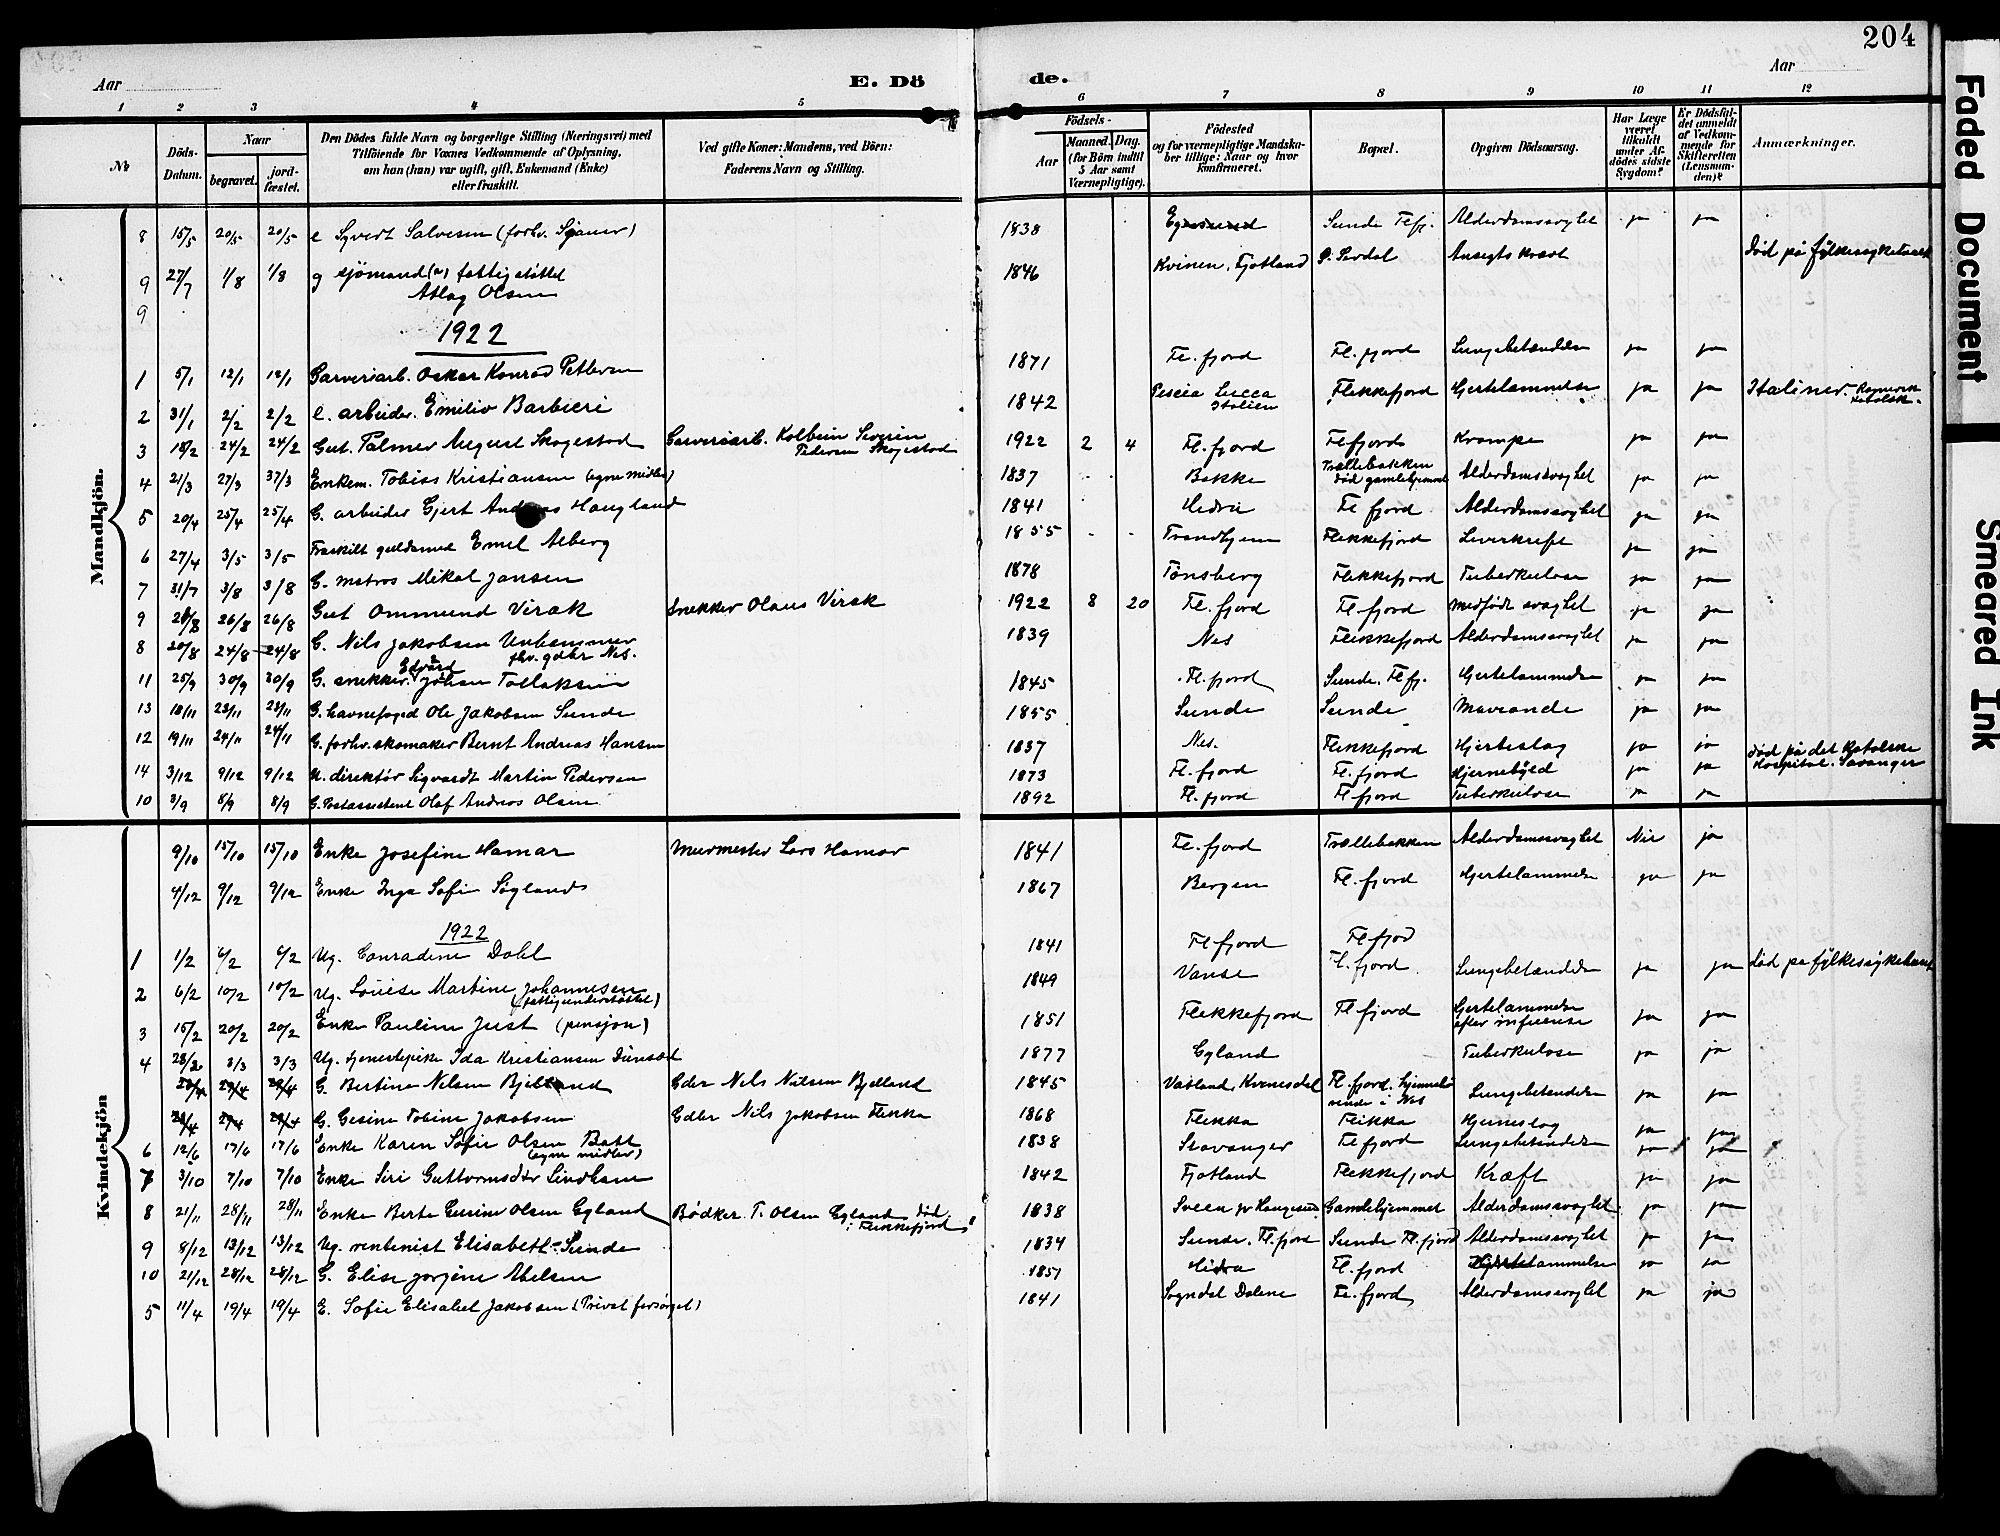 204
Aar
E. Dö
de.
Aar
1 2 3 4 5 6 7 8 9 10 11 12
No
Döds-Datum.
Naar
begravet.
jord-fæstet.
Den Dödes fulde Navn og borgerlige Stilling (Næringsvei) med
Tilföiende for Voxnes Vedkommende af Oplysning,
om han (hun) var ugift, gift, Enkemand (Enke)
eller fraskilt.
Ved gifte Koner: Mandens, ved Börn:
Faderens Navn og Stilling.
Födsels-
Aar
Maaned. Dag.
(for Börn indtil
5 Aar samt
Værnepligtige).
Födested
og for værnepligtige Mandska-
ber tillige: Naar og hvor
konfirmeret.
Bopæl.
Opgiven Dödsaarsag.
Har Læge
været
tilkaldt
under Af-
dödes sidste
Sygdom?
Er Dödsfal-
det anmeldt
af Vedkom-
mende for
Skifteretten
(Lensman-
den)?
Anmærkninger.
Mandkjön.
8 15/5 20/5 20/5 e Syvert Salvesen (forhv. Skauer) 1838 Egersund Sunde Flfj. Alderdomssvaghet ja ja
9 27/7 1/8 1/8 g sjömand (a) fattigstöttet 1846 Kvinen, Fjotland S. Sirdal Ansigtskræft Död på fylkessykehuset
Atlag Olsen
9
1922
1 5/1 12/1 12/1 Garveriarb. Oskar Konrad Pettersen 1871 Fl. fjord Fl. fjord Lungebetændelse ja ja
2 31/1 2/2 2/2 e. arbeider. Emilio Barbieri 1842 Pescia Lucca Italien Flekkefjord Hjertelammelse ja ja Italiner. Romersk katolsk.
3 18/2 24/2 24/2 Gut. Palmer August Skogestad Garveriarb. Kolbein Severin Pedersen Skogestad 1922 2 4 Fl. fjord Flfjord Krampe ja ja
4 21/3 27/3 37/3 Enkem. Tobias Kristiansen (egne midler) 1837 Bakke Trællebakken död gamlehjemmet Alderdomssvaghet ja ja
5 20/4 25/4 25/4 G. arbeider Gjert Andreas Haugland 1841 Hidra Fl fjord Alderdomssvaghet ja ja
6 27/4 3/5 3/5 Fraskilt guldsmed Emil Alberg 1855 Trondhjem Flekkefjord Leverkreft ja ja
7 31/7 3/8 3/8 G. matros Mikal Jansen 1878 Tönsberg Flekkefjord Tuberkulose ja ja
9 26/8 26/8 Gut Ommund Virak Snekker Olaus Virak 1922 8 20 Fl. fjord Fl. fjord Medfödt svaghet ja ja
8 20/8 24/8 24/8 G. Nils Jakobsen Unhammer fhv. gdbr Nes. 1839 Nes Flekkefjord Alderdomssvaghet ja ja
11 25/9 30/9 30/9 G. snekker. Edvard Johan Tollaksen 1845 Fl. fjord Sunde. Flfj. Hjertelammelse ja ja
13 18/11 23/11 23/11 G. havnefoged Ole Jakobsen Sunde 1855 Sunde Sunde Mavеonde ja ja
12 19/11 24/11 24/11 G. forhv. skomaker Bernt Andreas Hansen 1837 Nes. Flekkefjord Hjerteslag ja ja
14 3/12 9/12 9/12 U. direktör Sigvardt Martin Pedersen 1873 Fl. fjord Fl. fjord Hjernebyld ja ja Död på det Katolske Hospital. Stavanger
10 3/9 8/9 8/9 G. Postassistent Olaf Andreas Olsen 1892 Fl. fjord Fl. fjord Tuberkulose ja ja
Kvindekjön
9/10 15/10 15/10 Enke Josefine Hamar Murmester Lars Hamar 1841 Fl. fjord Trællebakken Alderdomssvaghet Nei ja
4/12 9/12 9/12 Enke Inga Sofie Söglands 1867 Bergen Fl. fjord Hjertelammelse ja ja
1922
1 1/2 6/2 6/2 Ug. Conradine Dahl 1841 Fl fjord Fl fjord
2 6/2 10/2 10/2 Ug. Louise Martine Johannesen (fattigunderstöttet) 1849 Vanse Fl. fjord Lungebetændelse ja ja Död på fylkessykehuset
3 15/2 20/2 20/2 Enke Pauline Just (pensjon) 1851 Flekkefjord Fl fjord Hjertelammelse efter influense ja ja
4 23/2 3/3 3/3 Ug. tjenestepike Ida Kristiansen 1877 Egland Tuberkulose ja ja
29/4 29/4 G. Bertine Nilsen Bjelland Gdbr Nils Nilsen Bjelland 1845 Vatland, Kvinesdal Fl. fjord. hjemmehörende i Nes Lungebetændelse ja ja
29/4 G. Gesine Tobine Jakobsen Gdbr Nils Jakobsen Flikka 1868 Flikka Flikka Hjerneslag ja ja
6 12/6 17/6 17/6 Enke Karen Sofie Olsen Batt (egne midler) 1838 Stavanger Fl fjord Lungebetændelse ja ja
7 3/10 7/10 7/10 Enke Siri Guttormsdtr Lindham 1842 Fjotland Flekkefjord Kræft ja ja
8 21/11 28/11 28/11 Enke Berte Gurine Olsen Egland Bödker T. Olsen Egland död i Flekkefjord 1838 Sveen pr Haugesund Gamlehjemmet Alderdomssvaghet ja ja
9 8/12 13/12 13/12 Ug. rentenist Elisabeth Sunde 1834 Sunde. Fl. fjord Sunde Fl. fjord Alderdomssvaghet ja ja
10 21/12 28/12 28/12 G. Elise Jorgine Abelsen 1851 Hidra Fl. fjord Hjertelammelse ja ja
5 11/4 19/4 19/4 E. Sofie Elisabet Jakobsen (Privat forsörget) 1841 Sogndal Dalene Fl. fjord Alderdomssvaghet ja ja
Faded Document
Smeared Ink